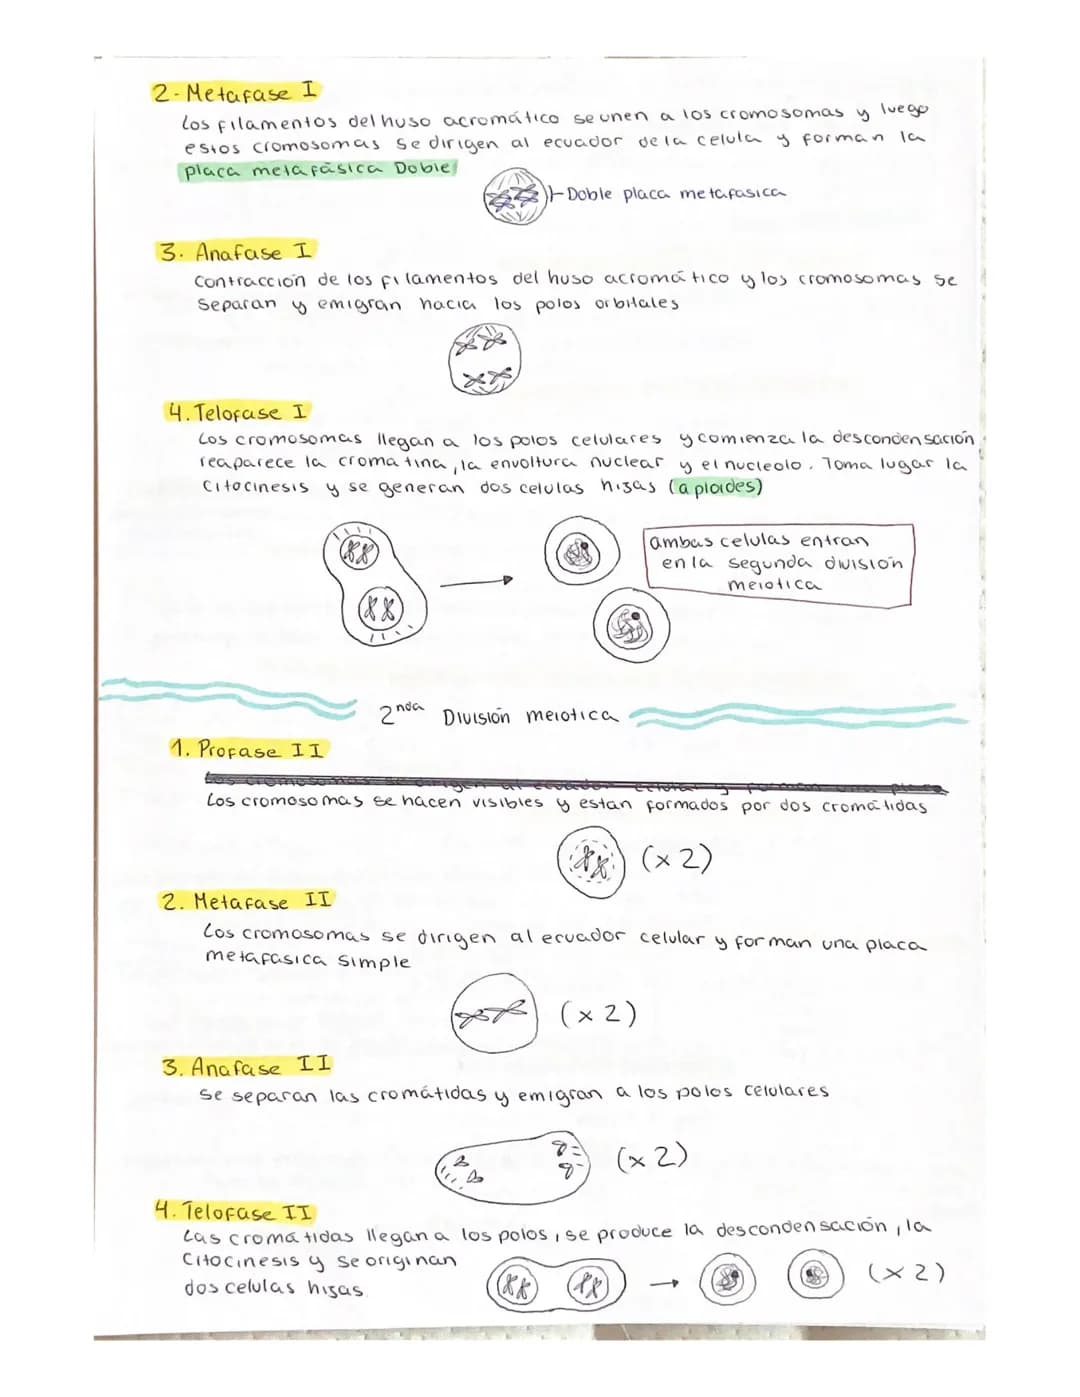 2-Metafase I
Los filamentos del huso acromático se unen a los cromosomas y luego
estos cromosomas se dirigen al ecuador de la celula y forman la
placa metafásica Doble
Doble placa metafasica
3. Anafase I
Contracción de los filamentos del huso acromático y los cromosomas se
separan y emigran hacia los polos orbitales
4. Telofase I
Los cromosomas llegan a los polos celulares y comienza la descondensación,
reaparece la cromatina, la envoltura nuclear y el nucleolo. Toma lugar la
citocinesis y se generan dos celulas hijas (aploides)
ambas celulas entran
en la segunda división
meiotica
2nda División meiotica
1. Profase II
Los cromosomas se dirigen al ecuador celular y forman una placa
Los cromosomas se hacen visibles y estan formados por dos cromátidas
(x2)
2. Metafase II
Los cromosomas se dirigen al ecuador celular y forman una placa
metafasica simple
(x2)
3. Anafase II
se separan las cromátidas y emigran a los polos celulares
(x2)
4. Telofase II
Las cromatidas llegan a los polos, se produce la descondensación, la
citocinesis y se originan
dos celulas hijas.
(x2)